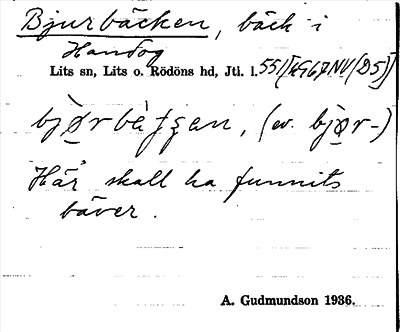 Bjurbäcken, bäck i
Handog
Lits sn, Lits o. Rödöns hd, Jtl. l. 551 [HG67NV(D5)]
bjørbät̯ʂan, (ev. bjør-)
Här skall ha funnits
bäver.
A. Gudmundson 1936.